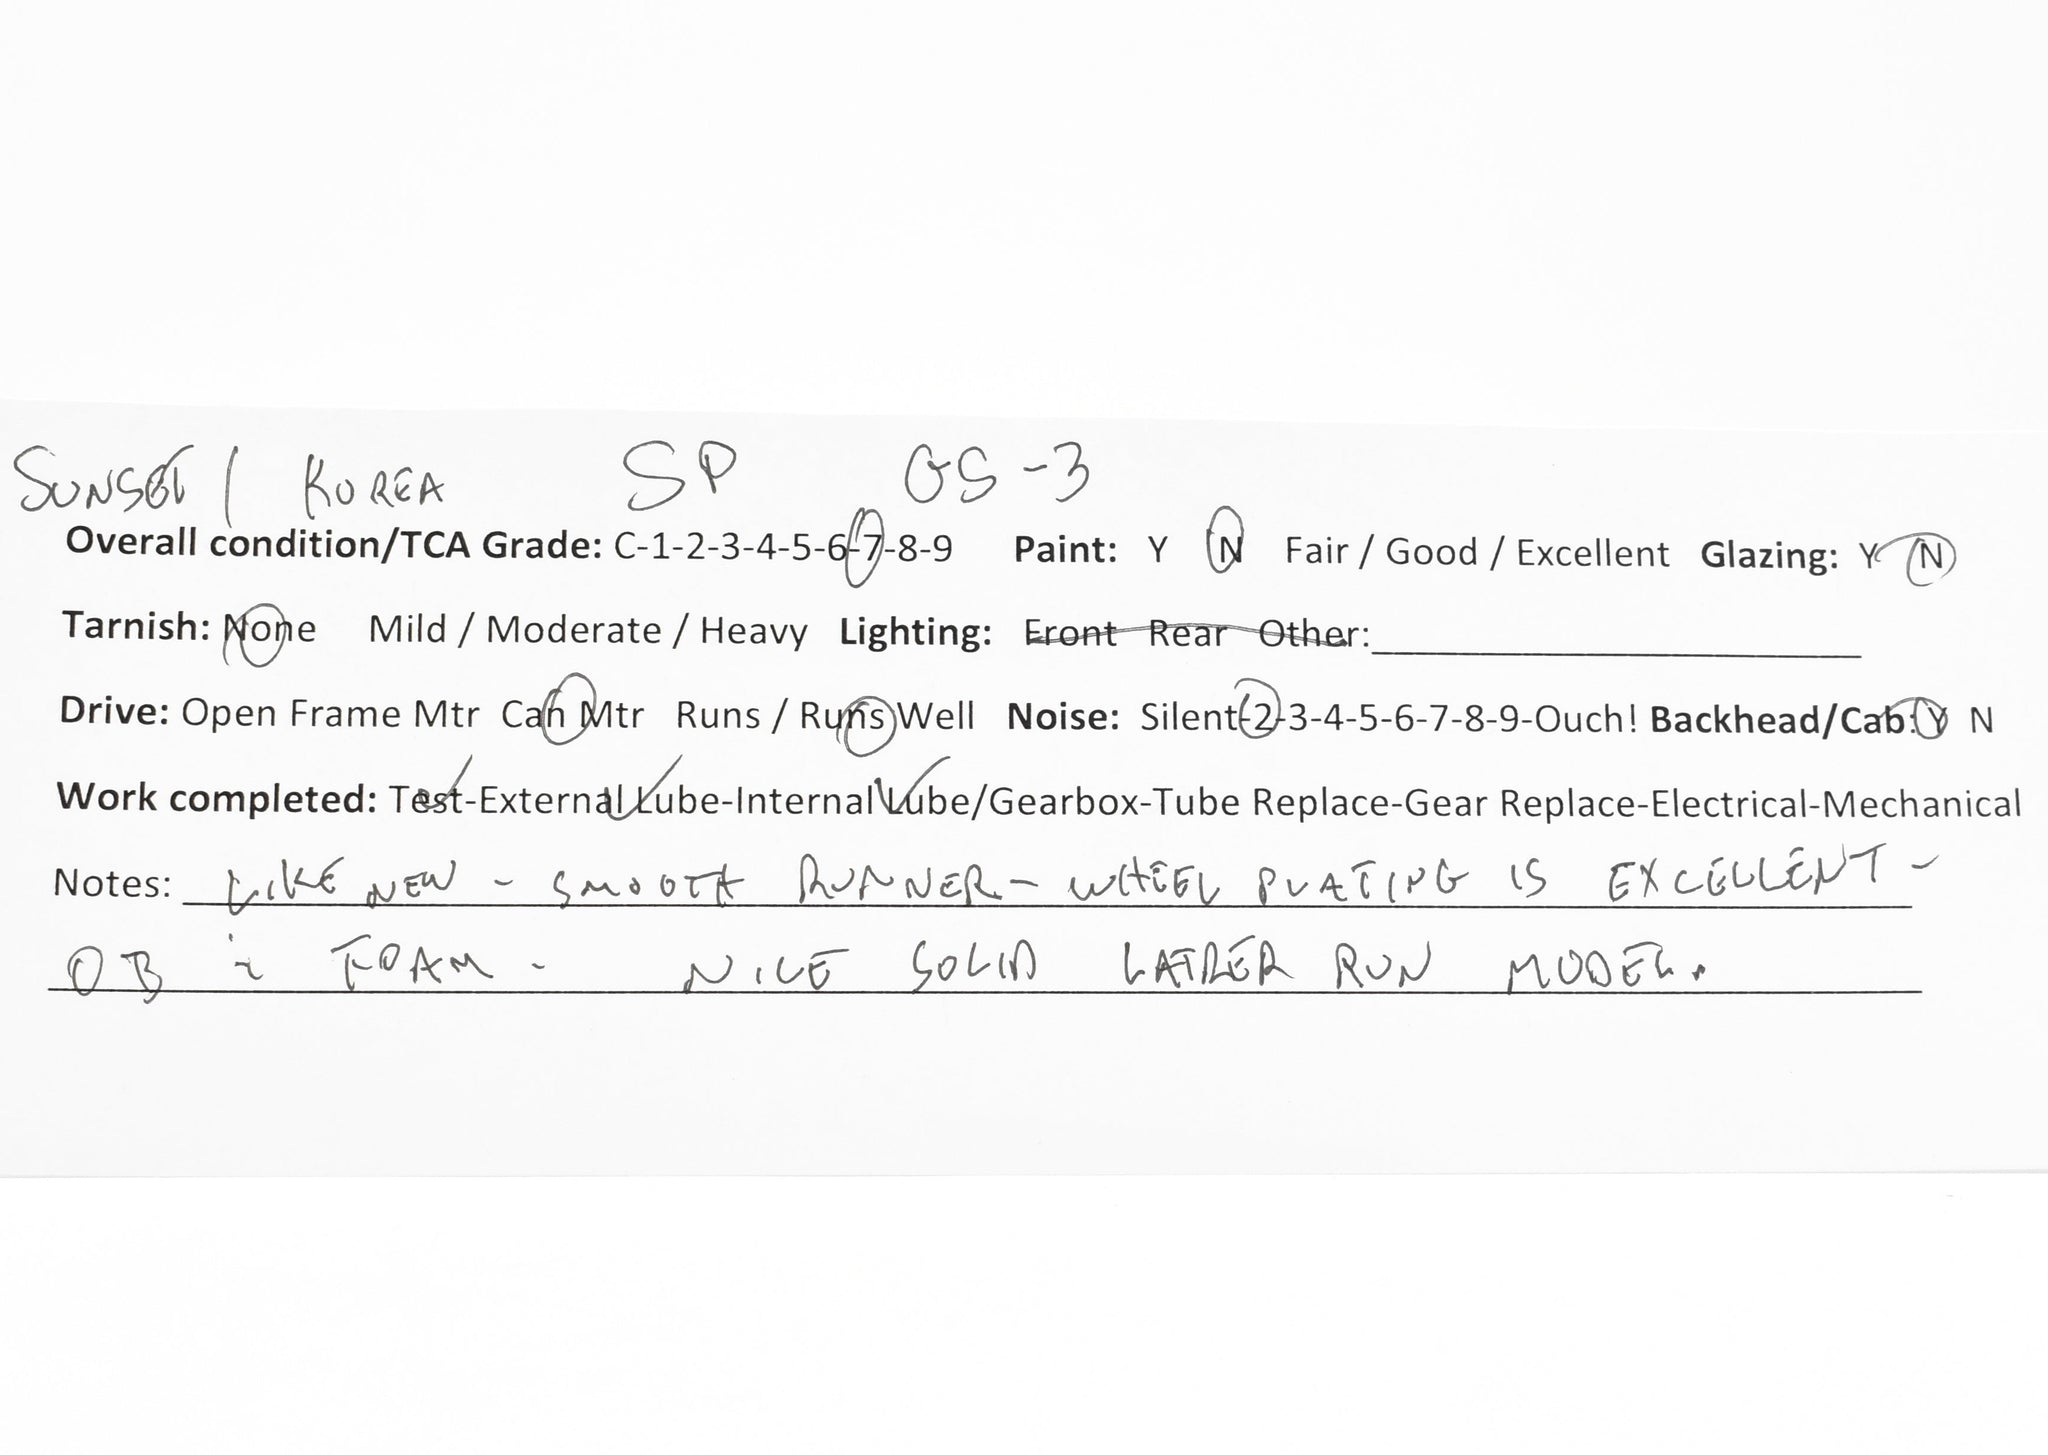 SUNSET / KOREA SP GS-3
Overall condition/TCA Grade: C-1-2-3-4-5-6-7-8-9 Paint: Y N Fair / Good / Excellent Glazing: Y N
Tarnish: None Mild / Moderate / Heavy Lighting: Front Rear Other:
Drive: Open Frame Mtr Can Mtr Runs / Runs Well Noise: Silent-2-3-4-5-6-7-8-9-Ouch! Backhead/Cab: Y N
Work completed: Test-External Lube-Internal Lube/Gearbox-Tube Replace-Gear Replace-Electrical-Mechanical
Notes: LIKE NEW - SMOOTH RUNNER - WHEEL PLATING IS EXCELLENT -
OB FOAM - NICE SOLID LATER RUN MODEL.